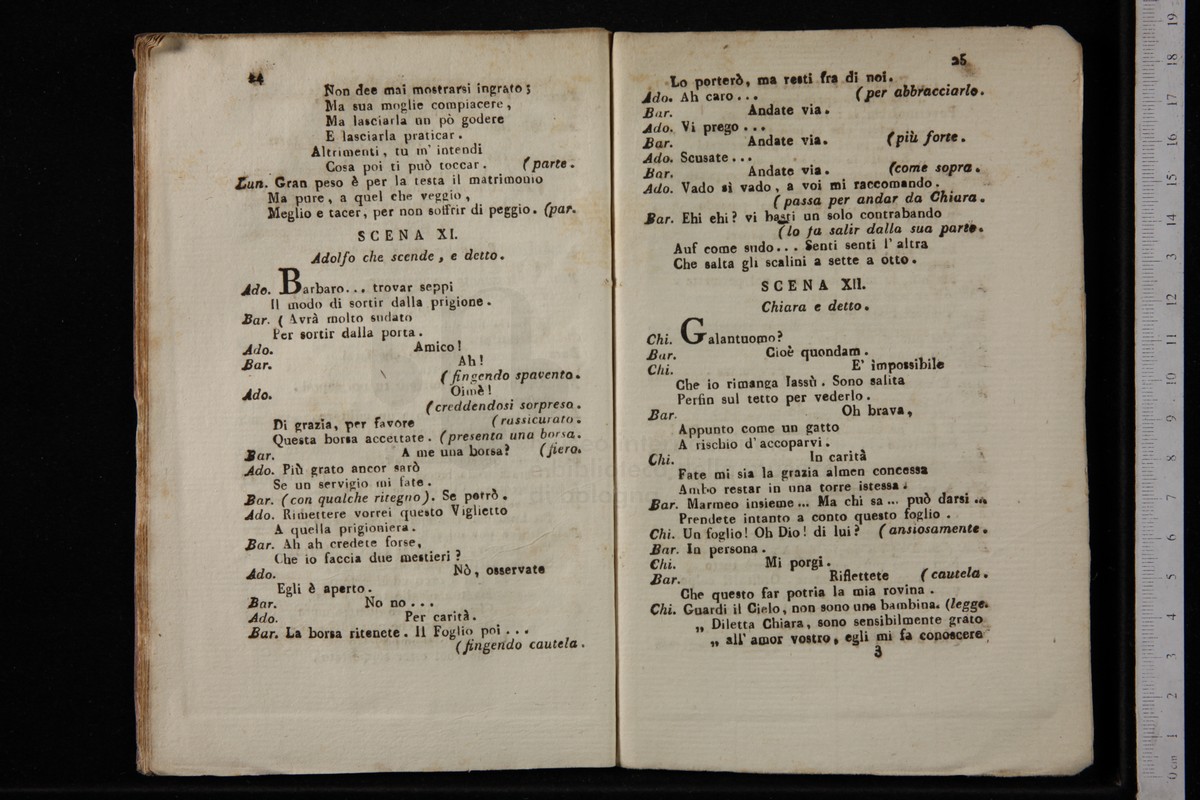 24
Non dee mai mostrarsi ingrato;
Ma sua moglie compiacere,
Ma lasciarla un pò godere
E lasciarla praticar.
Altrimenti, tu m' intendi
Cosa poi ti può toccar. (parte.
Lun. Gran peso è per la testa il matrimonio
Ma pure, a quel che veggio,
Meglio e tacer, per non soffrir di peggio. (par.
SCENA XI.
Adolfo che scende, e detto.
Ado. Barbaro... trovar seppi
Il modo di sortir dalla prigione.
Bar. ( Avrà molto sudato
Per sortir dalla porta.
Ado. Amico!
Bar. Ah!
(fingendo spavento.
Ado. Oimè!
(creddendosi sorpreso.
Di grazia, per favore (rassicurato.
Questa borsa accettate. (presenta una borsa.
Bar. A me una borsa? (fiero.
Ado. Più grato ancor sarò
Se un servigio mi fate.
Bar. (con qualche ritegno). Se potrò.
Ado. Rimettere vorrei questo Viglietto
A quella prigioniera.
Bar. Ah ah credete forse,
Che io faccia due mestieri?
Ado. Nò, osservate
Egli è aperto.
Bar. No no...
Ado. Per carità.
Bar. La borsa ritenete. Il Foglio poi...
(fingendo cautela.
25
Lo porterò, ma resti fra di noi.
Ado. Ah caro... (per abbracciarlo.
Bar. Andate via.
Ado. Vi prego...
Bar. Andate via. (più forte.
Ado. Scusate...
Bar. Andate via. (come sopra.
Ado. Vado sì vado, a voi mi raccomando.
(passa per andar da Chiara.
Bar. Ehi ehi? vi basti un solo contrabando
(lo fa salir dalla sua parte.
Auf come sudo... Senti senti l' altra
Che salta gli scalini a sette a otto.
SCENA XII.
Chiara e detto.
Chi. Galantuomo?
Bar. Cioè quondam.
Chi. E' impossibile
Che io rimanga lassù. Sono salita
Perfin sul tetto per vederlo.
Bar. Oh brava,
Appunto come un gatto
A rischio d' accoparvi.
Chi. In carità
Fate mi sia la grazia almen concessa
Ambo restar in una torre istessa.
Bar. Marmeo insieme... Ma chi sa... può darsi...
Prendete intanto a conto questo foglio.
Chi. Un foglio! Oh Dio! di lui? (ansiosamente.
Bar. In persona.
Chi. Mi porgi.
Bar. Riflettete (cautela.
Che questo far potria la mia rovina.
Chi. Guardi il Cielo, non sono una bambina. (legge.
„ Diletta Chiara, sono sensibilmente grato
„ all' amor vostro, egli mi fa conoscere
3